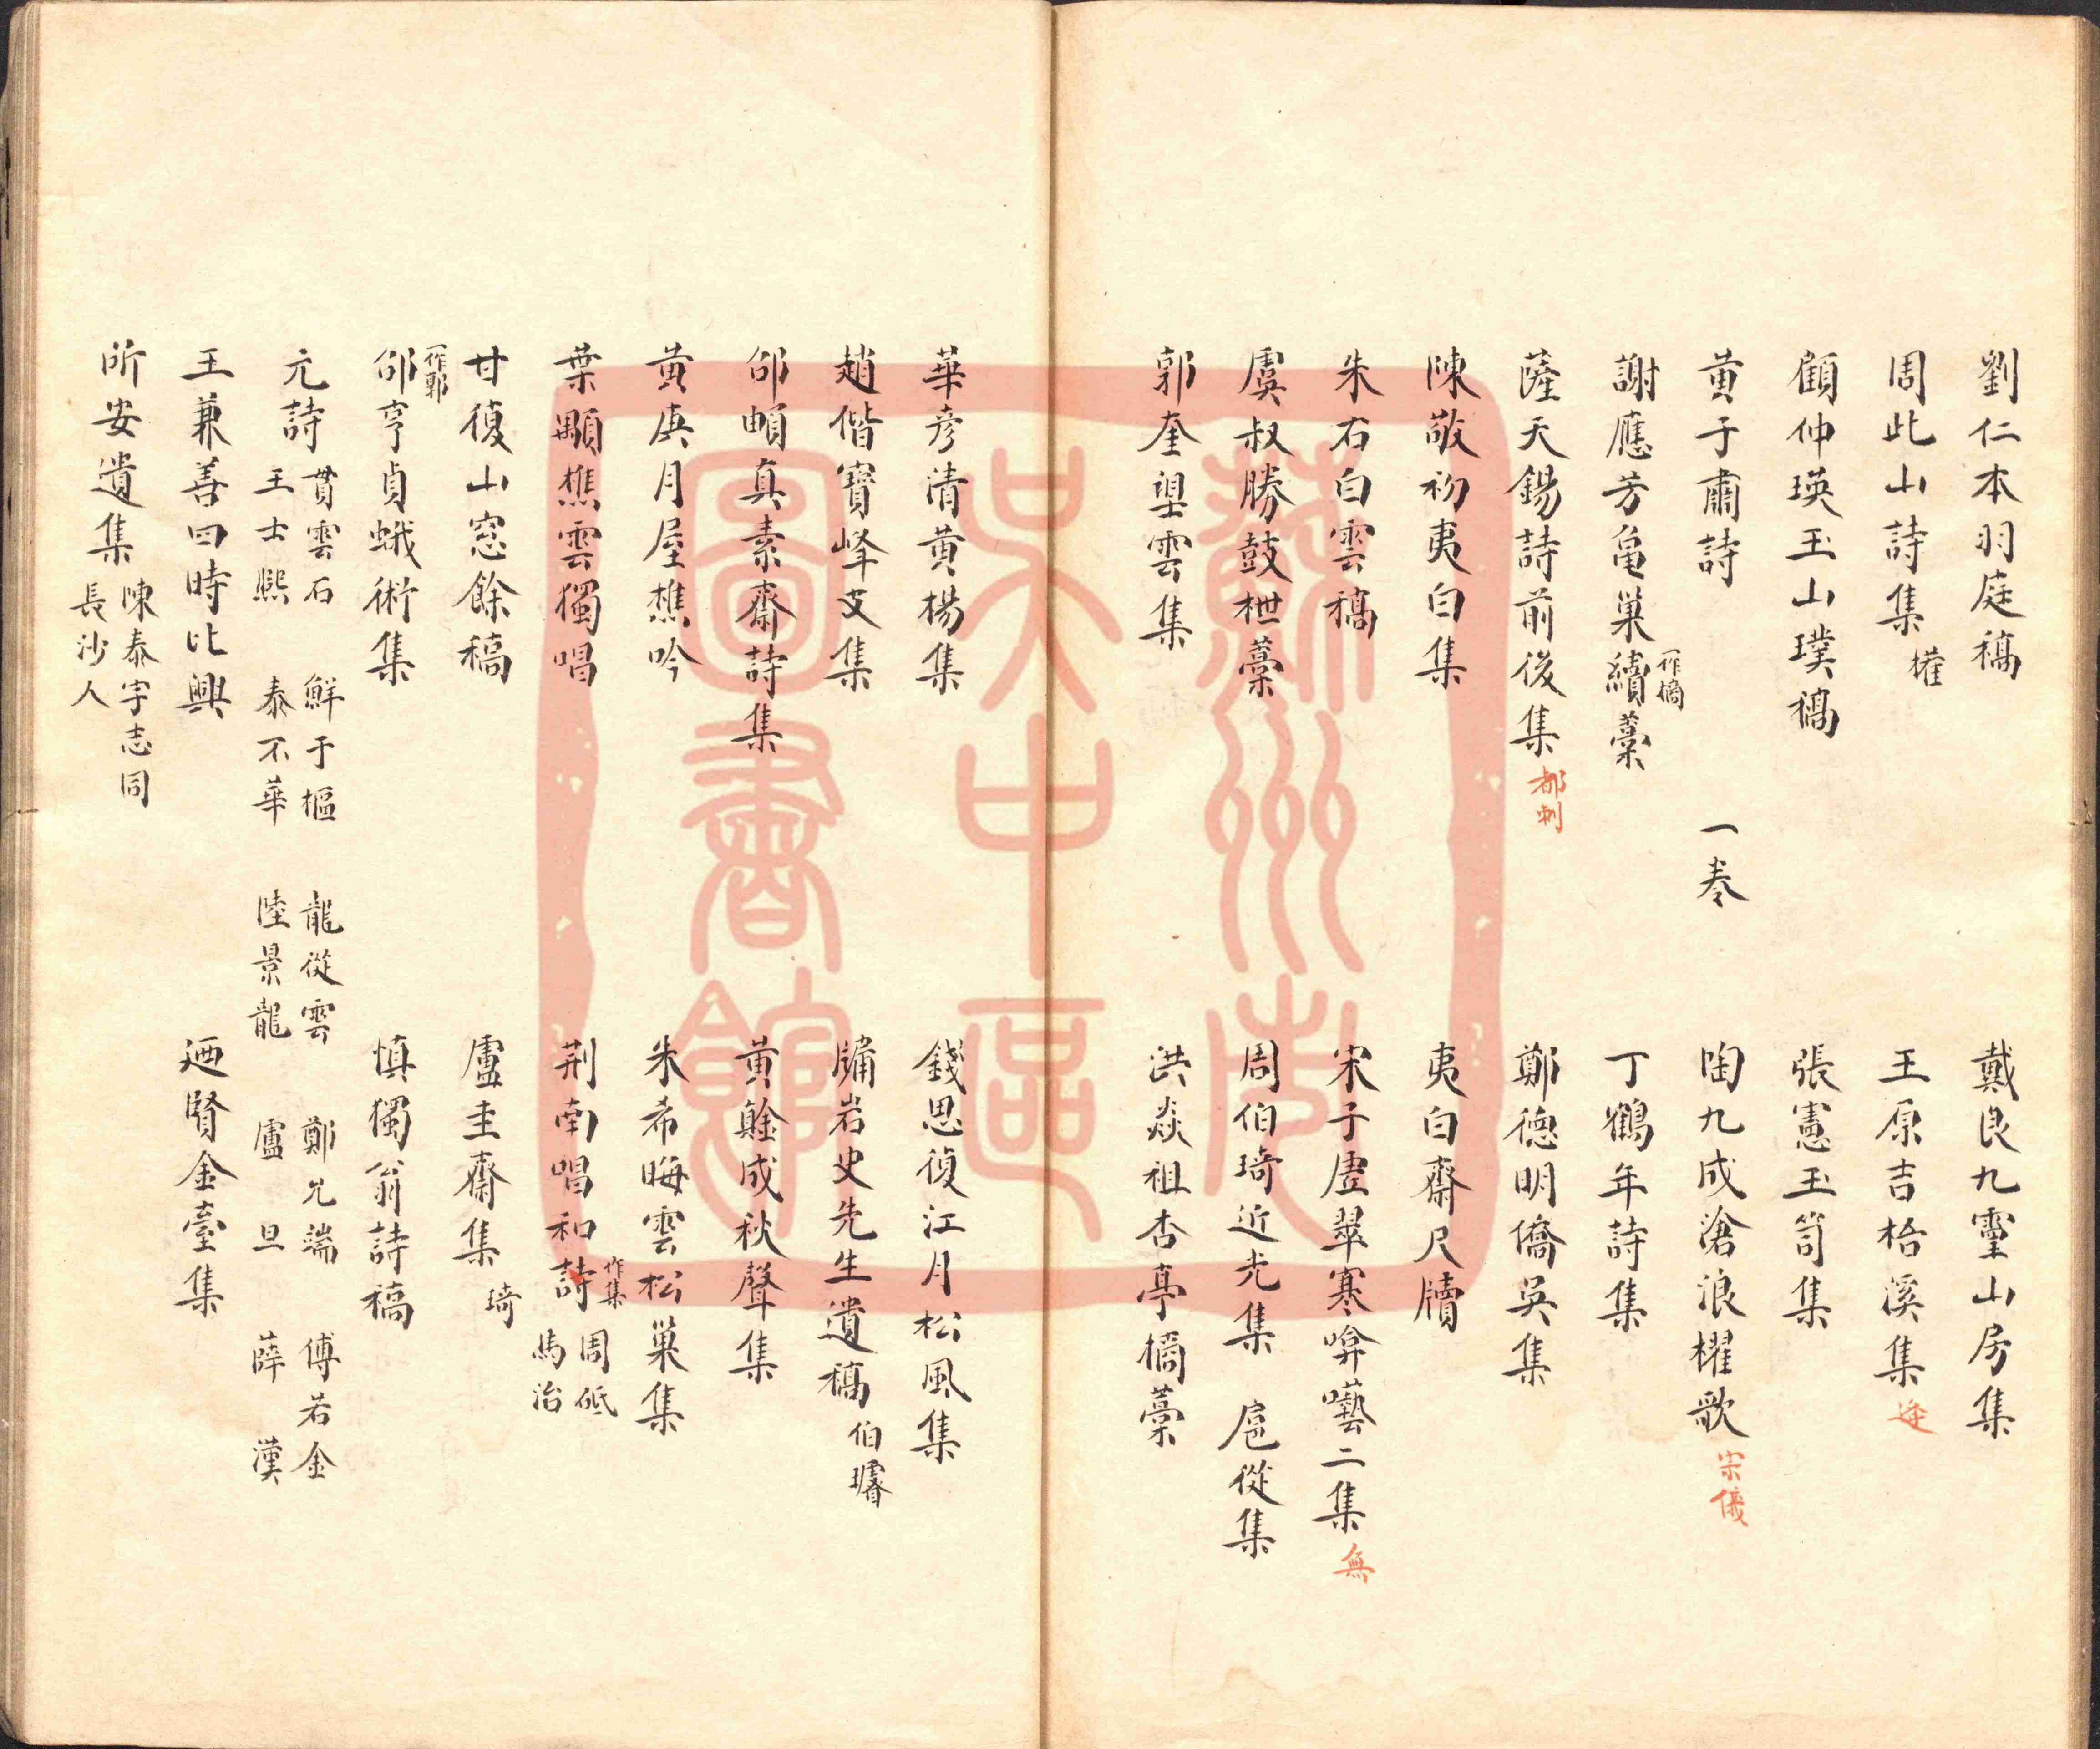 劉仁本羽庭稿　戴良九靈山房集
周此山詩集權　王原吉梧溪集逄
顧仲瑛玉山璞稿　張憲玉笥集
黄子肅詩　一卷　陶九成滄浪櫂歌宗儀
謝應芳龜巢續藁一作摘　丁鶴年詩集
薩天錫詩前後集都刺　鄭德明僑吳集
陳敬初夷白集　夷白齋尺牘
朱右白雲稿　宋子虛翠寒啽囈二集無
虞叔勝鼓枻藁　周伯琦近光集　扈從集
郭奎望雲集　洪焱祖杏亭摘藁
華彥清黄楊集　錢思復江月松風集
趙偕寶峰文集　牖岩史先生遺稿伯璿
邵𩒮真素齋詩集　黄鎮成秋聲集
黄庚月屋樵吟　朱希晦雲松巢集
葉顒樵雲獨唱　荆南唱和詩作集　周砥　馬治
甘復山窓餘稿　盧圭齋集琦
邰亨貞蛾術集一作郭　慎獨翁詩稿
元詩　貫雲石　鮮于樞　龍從雲　鄭允端　傅若金
王士熙　泰不華　陸景龍　盧亘　薛漢
王兼善四時比興　迺賢金臺集
所安遺集　陳泰字志同
長沙人
蘇州市
吳中區
圖書館